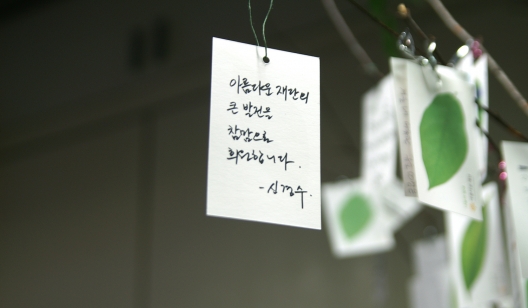 아름다운 재단의
큰 발전을
참깊으로
희원합니다.
-신경수.